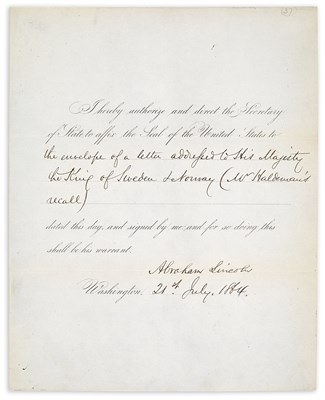 I hereby authorize and direct the Secretary
of State to affix the Seal of the United States to
the envelope of a letter addressed to His Majesty
the King of Sweden & Norway (Mr Haldeman's
recall)
dated this day, and signed by me and for so doing this
shall be his warrant.
Abraham Lincoln
Washington, 21st July, 1864.